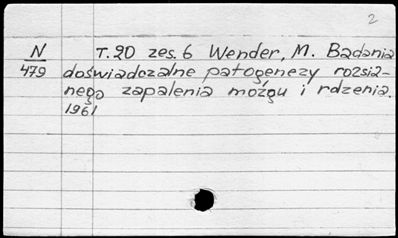 2
N T.20 zes.6 Wender, M. Badania
479 doświadczalne patogenezy rozsia-
nego zapalenia mózgu i rdzenia.
1961